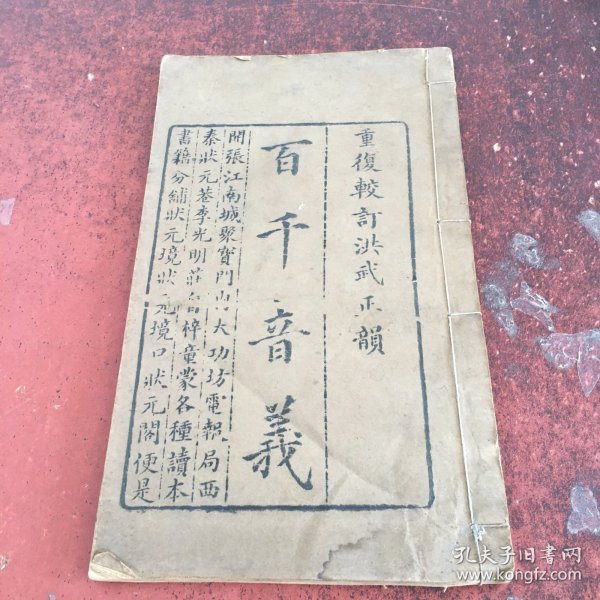 重復較訂洪武正韻
百千音義
開張江南城聚寶門内大功坊電報局西
秦狀元巷李光明莊自梓童蒙各種讀本
書籍分鋪狀元境狀元境口狀元閣便是
孔夫子旧书网
www.kongfz.com